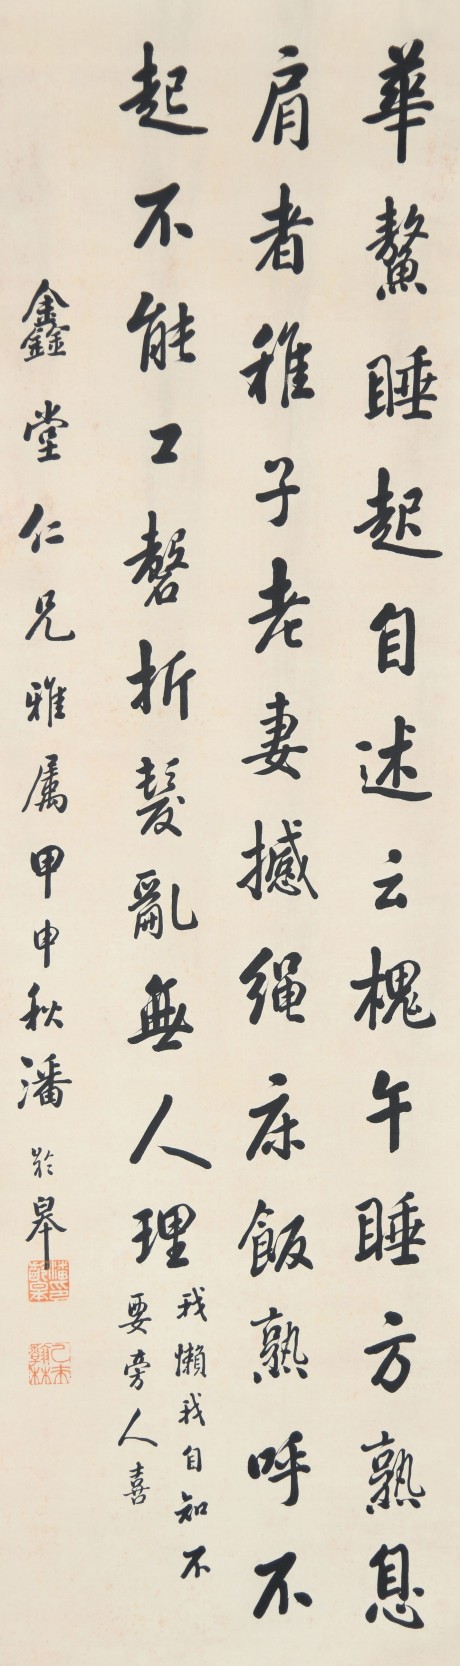 華鰲睡起自述云槐午睡方熟息
肩者稚子老妻撼绳床飯熟呼不
起不能工磬折髮亂無人理
我懶我自知不
要旁人喜
鑫堂仁兄雅属甲申秋潘龄皋
潘印龄皋
乙未翰林